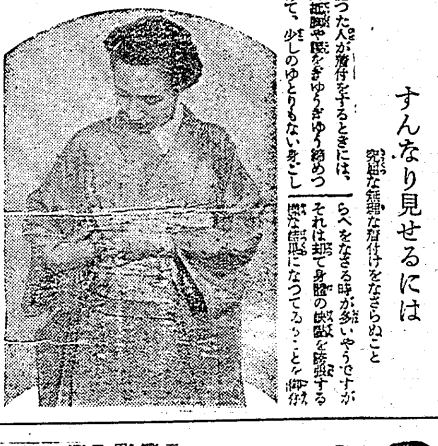 すんなり見せるには
窮屈な無理な着付けをなさらぬこと
つた人が着付をするときには、
や腰をぎゆうぎゆう締めつ
て、少しのゆとりもない身ごし
らへをなさる時が多いやうですが
それは却て身體の缺點を誇張する
結果になつてゐることを御存